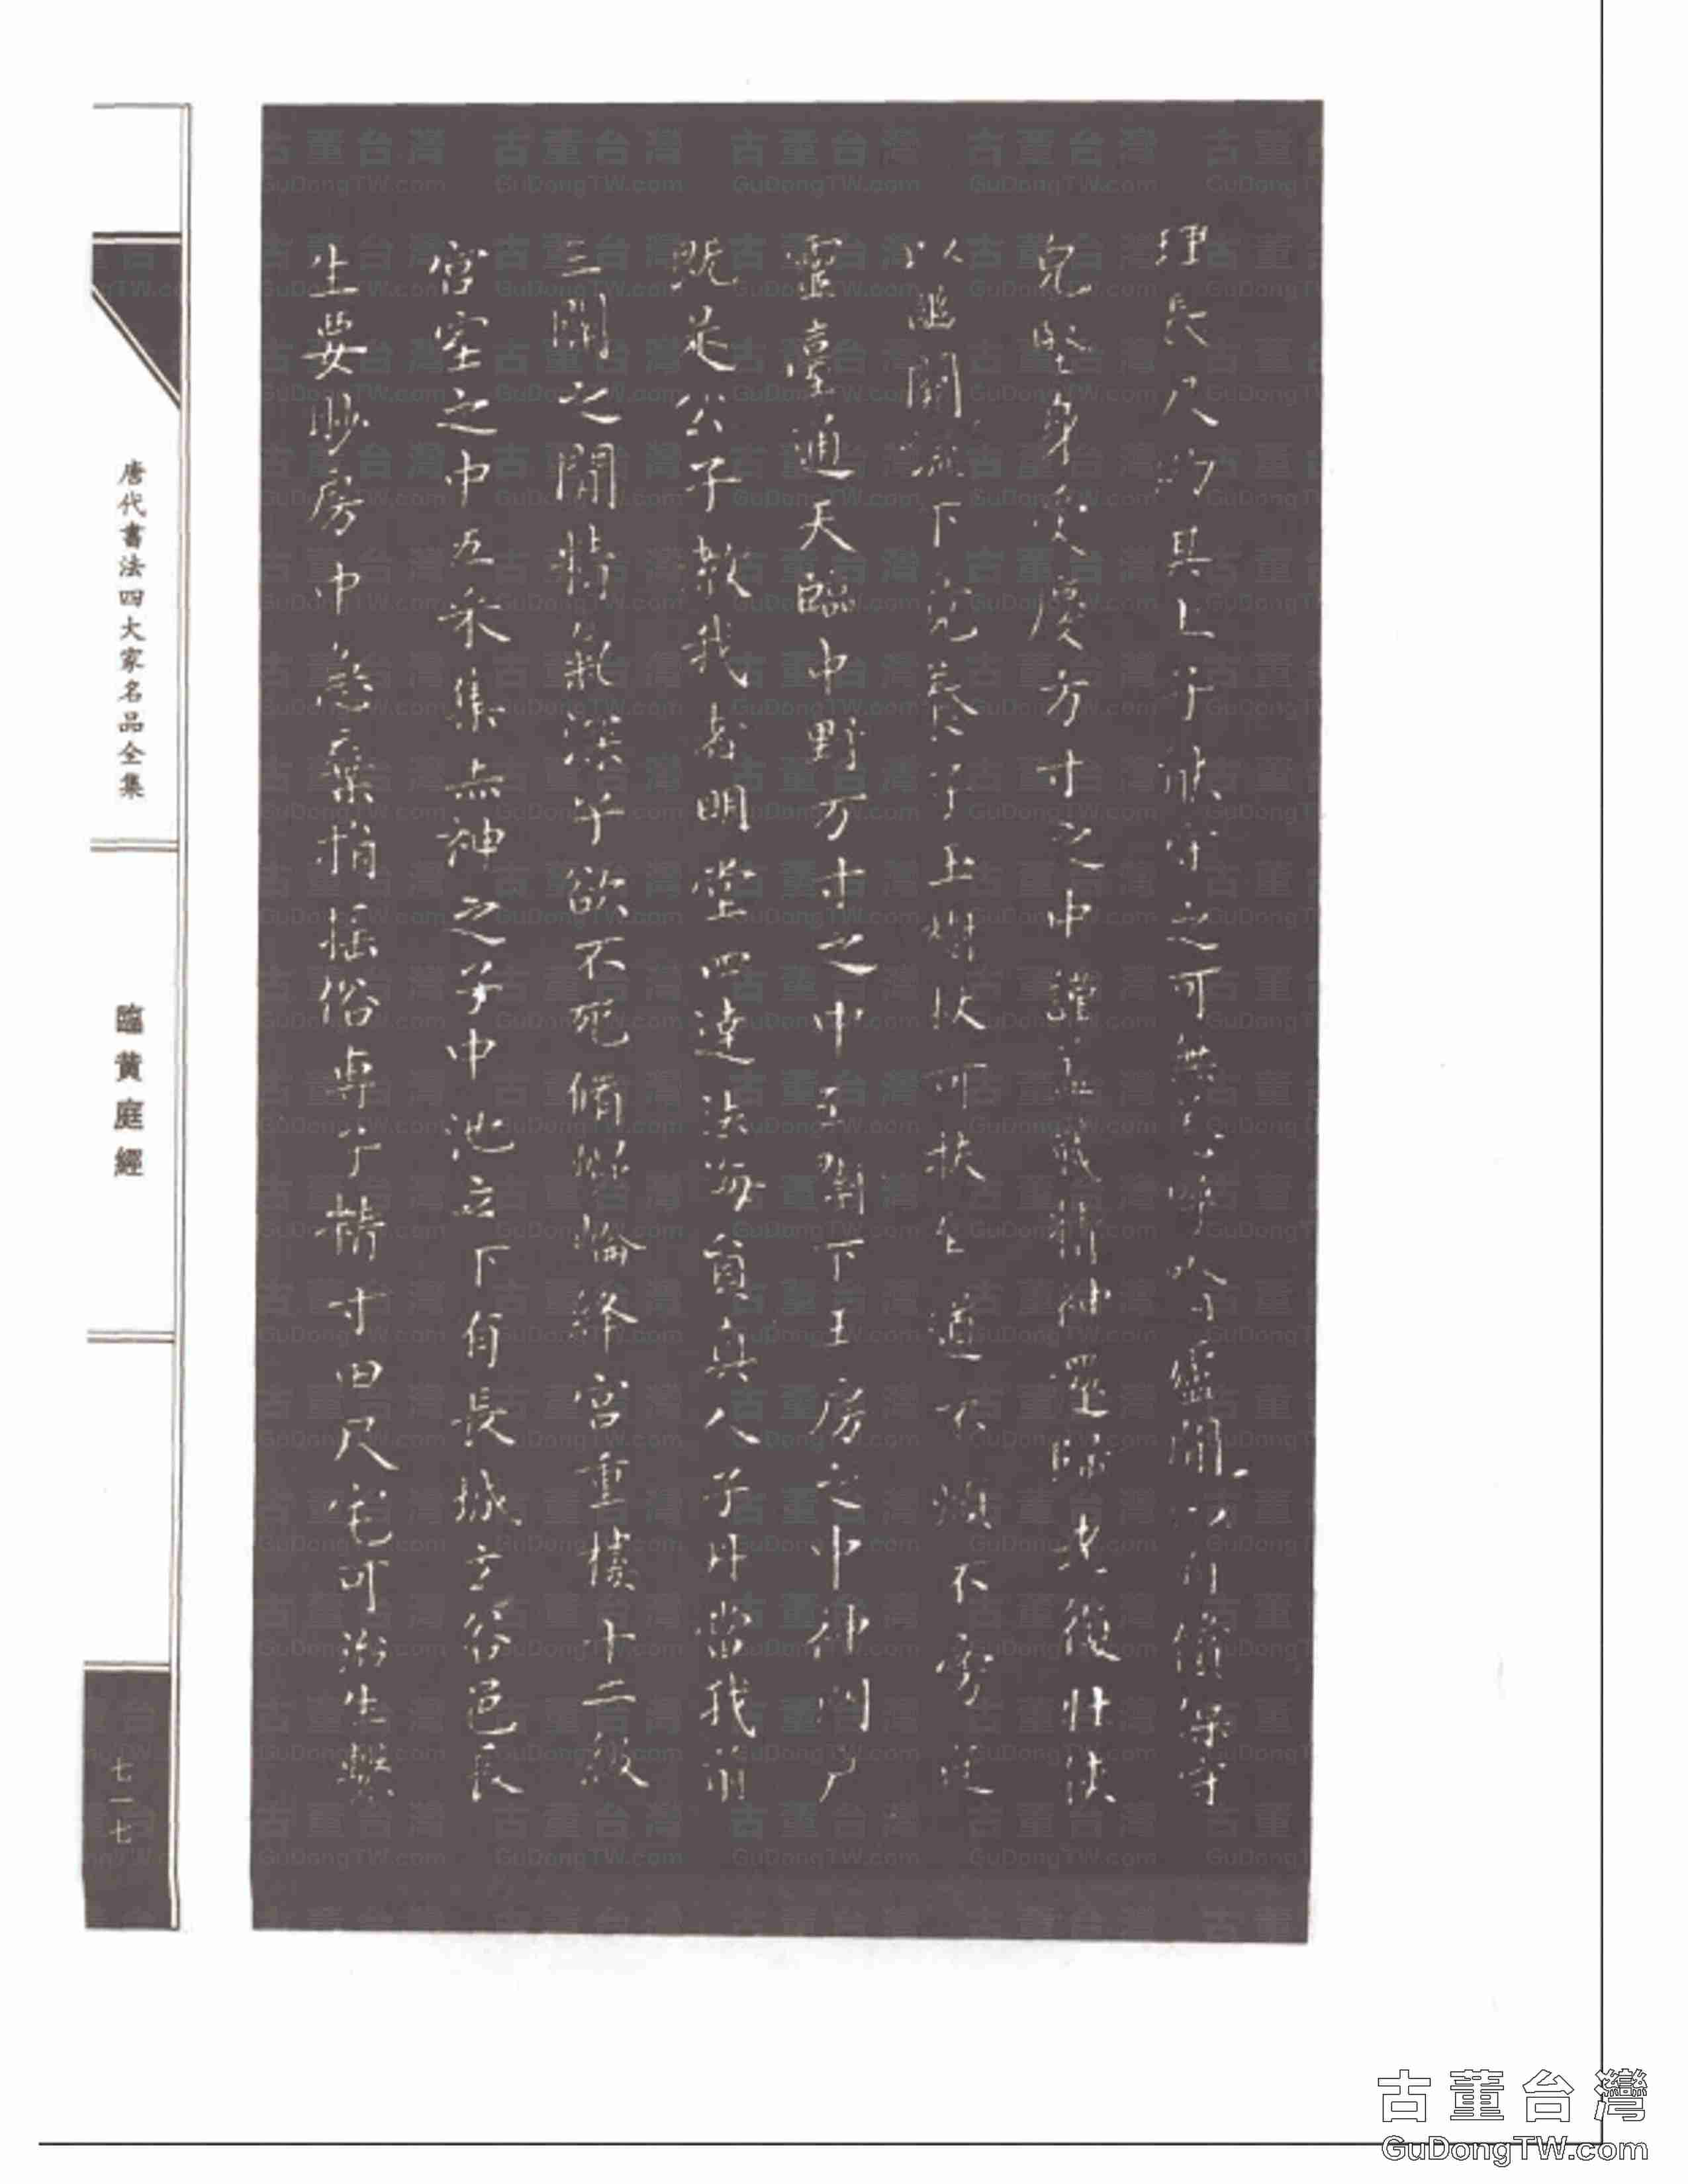 理長尺約其上子能守之可無恙呼吸廬間以自償保守
完堅身受慶方寸之中謹蓋藏精神還歸老復壯俠
以幽闕流下竟養子玉樹杖可扶至道不煩不旁迕
靈臺通天臨中野方寸之中至關下玉房之中神門戶
既是公子教我者明堂四達法海員真人子丹當我前
三關之間精氣深子欲不死脩崐崘絳宮重樓十二級
宮室之中五采集赤神之子中池立下有長城玄谷邑長
生要眇房中急棄捐搖俗專子精寸田尺宅可治生繫
唐代書法四大家名品全集
臨黃庭經
七一七
古董台灣
GuDongTW.com